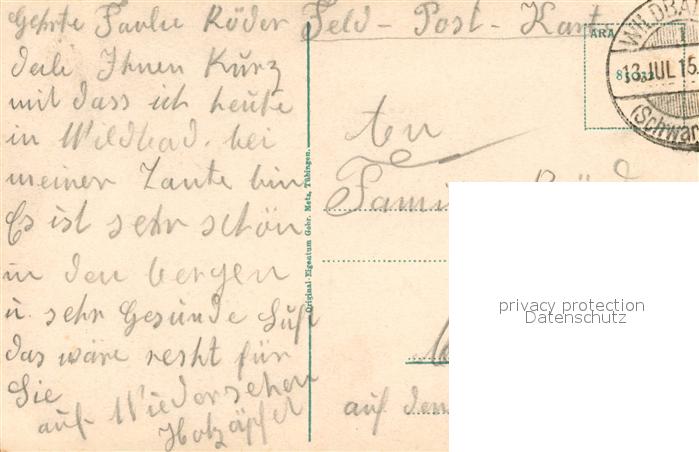 Gehrte Familie Röder
deile Ihnen Kurz
mit dass ich heute
in Wildbad bei
meiner Tante bin
Es ist sehr schön
in den bergen
u. sehr Gesunde Luft
das wäre resht für
Sie
auf Wiedersehen
Holzäpfel
Original-Eigentum Gebr. Metz, Tübingen.
Feld - Post - Kart
ARA
WILDBA
13 JUL 15
(Schwar
An
Fami
auf dem
privacy protection
Datenschutz